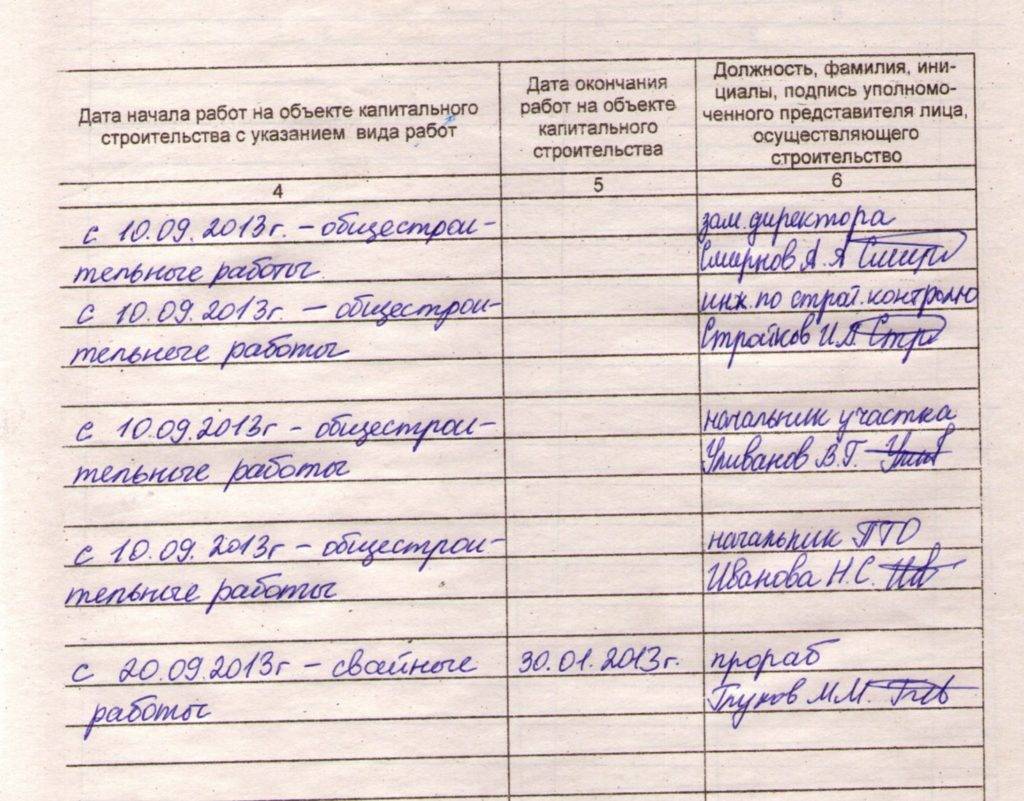 Дата начала работ на объекте капитального
строительства с указанием вида работ
Дата окончания
работ на объекте
капитального
строительства
Должность, фамилия, ини-
циалы, подпись уполномо-
ченного представителя лица,
осуществляющего
строительство
4 5 6
с 10.09.2013г. – общестрои- зам. директора
тельные работы Смирнов А.А
с 10.09.2013г. – общестрои- инж. по строит. контролю
тельные работы Стройков И.А
с 10.09.2013г – общестрои- начальник участка
тельные работы В.Г.
с 10.09.2013г – общестрои- начальник ПТО
тельные работы Иванова Н.С.
с 20.09.2013г – свайные 30.01.2013г. прораб
работы М.М.